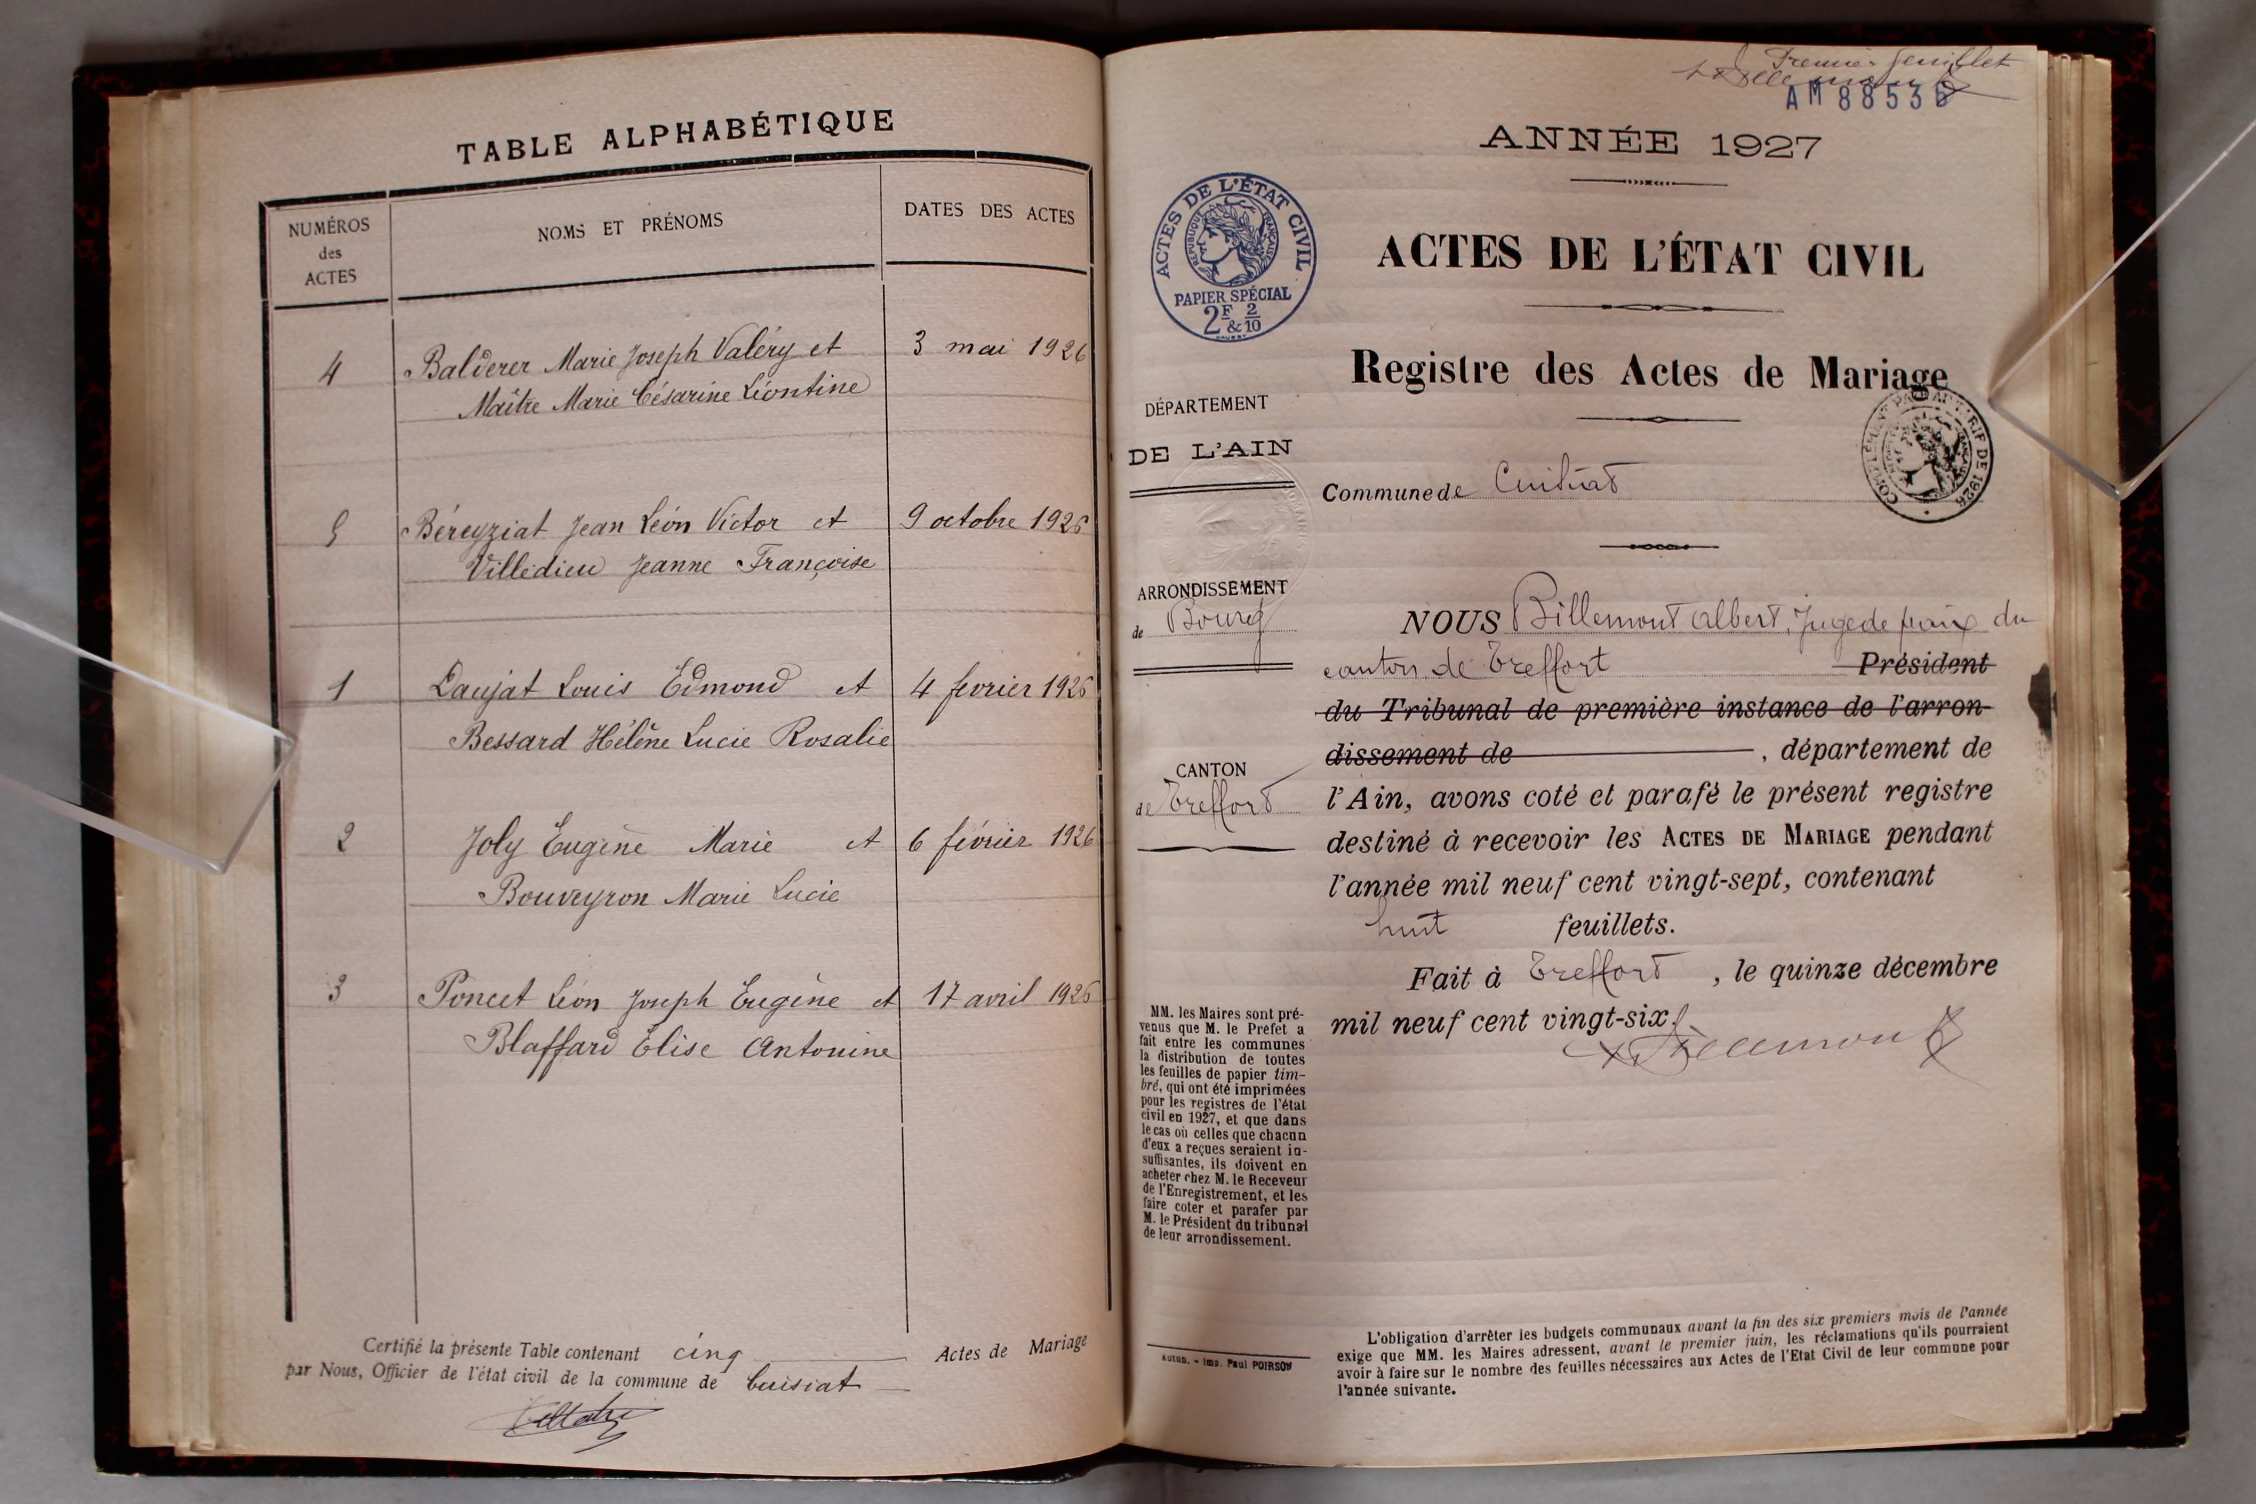 TABLE ALPHABÉTIQUE
NUMÉROS
des
ACTES
NOMS ET PRÉNOMS
DATES DES ACTES
4 Balderer Marie Joseph Valéry et 3 mai 1926
Maître Marie Césarine Léontine
5 Béreyziat Jean Léon Victor et 9 octobre 1926
Villedieu Jeanne Françoise
1 Laujat Louis Edmond et 4 fevrier 1926
Bessard Hélène Lucie Rosalie
2 Joly Eugène Marie et 6 février 1926
Bouveyron Marie Lucie
3 Poncet Léon Joseph Eugène et 17 avril 1926
Blaffard Elise Antonine
Certifié la présente Table contenant cinq Actes de Mariage
par Nous, Officier de l'état civil de la commune de Cuisiat
Premier feuillet
AM 88536
ANNÉE 1927
ACTES DE L'ÉTAT CIVIL
RÉPUBLIQUE FRANÇAISE
PAPIER SPÉCIAL
2F & 2/10
ACTES DE L'ÉTAT CIVIL
Registre des Actes de Mariage
COMPLÉMENT TARIF DE 1926
DÉPARTEMENT
DE L'AIN
Commune de Cuisiat
ARRONDISSEMENT
de Bourg
CANTON
de Treffort
NOUS Billemont Albert, Juge de paix du
canton de Treffort Président
du Tribunal de première instance de l'arron-
dissement de , département de
l'Ain, avons coté et parafé le présent registre
destiné à recevoir les ACTES DE MARIAGE pendant
l'année mil neuf cent vingt-sept, contenant
huit feuillets.
Fait à Treffort, le quinze décembre
mil neuf cent vingt-six.
Billemont
MM. les Maires sont pré-
venus que M. le Prefet a
fait entre les communes
la distribution de toutes
les feuilles de papier tim-
bré, qui ont été imprimées
pour les registres de l'état
civil en 1927, et que dans
le cas où celles que chacun
d'eux a reçues seraient in-
suffisantes, ils doivent en
acheter chez M. le Receveur
de l'Enregistrement, et les
faire coter et parafer par
M. le Président du tribunal
de leur arrondissement.
Autun. - Imp. Paul POIRSON
L'obligation d'arrêter les budgets communaux avant la fin des six premiers mois de l'année
exige que MM. les Maires adressent, avant le premier juin, les réclamations qu'ils pourraient
avoir à faire sur le nombre des feuilles nécessaires aux Actes de l'Etat Civil de leur commune pour
l'année suivante.